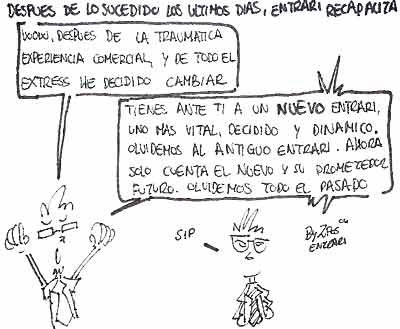 DESPUES DE LO SUCEDIDO LOS ULTIMOS DIAS, ENTRARI RECAPACITA
DESPUES DE LA TRAUMATICA
EXPERIENCIA COMERCIAL, Y DE TODO EL
EXTRESS HE DECIDIDO CAMBIAR
TIENES ANTE TI A UN NUEVO ENTRARI,
UNO MAS VITAL, DECIDIDO Y DINAMICO.
OLVIDEMOS AL ANTIGUO ENTRARI. AHORA
SOLO CUENTA EL NUEVO Y SU PROMETEDOR
FUTURO. OLVIDEMOS TODO EL PASADO
SIP
By
ENTRARI